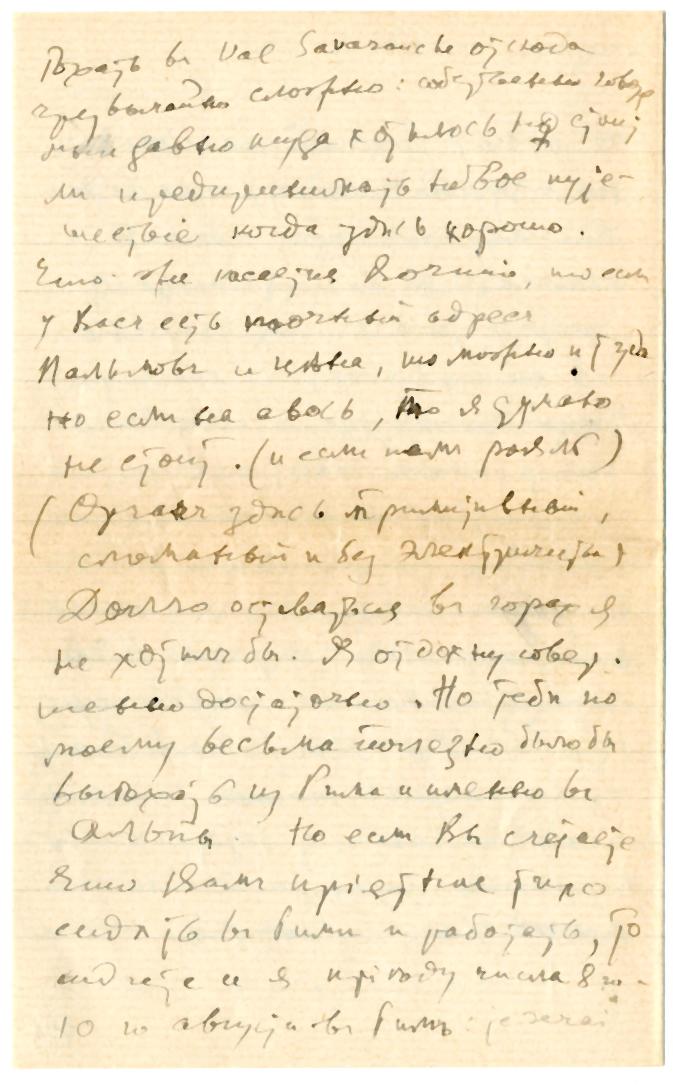 Ѣхать въ Val Savaranche отсюда
чрезвычайно сложно: собственно говоря
давно куда хотѣлось не стоит
ли предпринимать новое путе-
шествiе когда здѣсь хорошо.
Что же касается, то если
у Васъ есть точный адресъ
и цѣна, то можно и туда
но если на авось, то я думаю
не стоит. (и если тамъ рояль)
(Органъ здѣсь примитивный,
сломанный и без электричества)
Долго оставаться въ горахъ я
не хотѣлъ бы. Я отдохну совер-
шенно достаточно. Но тебѣ по
моему весьма полезно было бы
выѣхать из Рима и именно въ
Альпы. Но если Вы считаете
что Вамъ прiятнѣе тихо
сидѣть въ Римѣ и работать, то
сидите и я прiѣду числа 8го-
10 го августа въ Римъ: